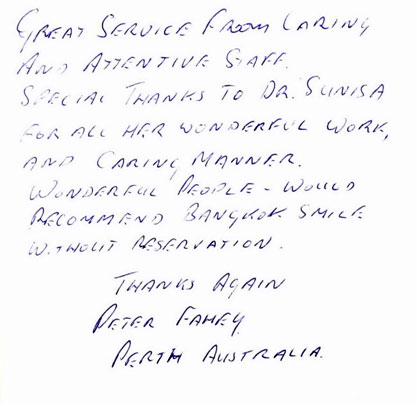 GREAT SERVICE FROM CARING
AND ATTENTIVE STAFF.
SPECIAL THANKS TO DR. SUNISA
FOR ALL HER WONDERFUL WORK,
AND CARING MANNER.
WONDERFUL PEOPLE - WOULD
RECOMMEND BANGKOK SMILE
WITHOUT RESERVATION.
THANKS AGAIN
PETER FAHEY
PERTH AUSTRALIA.